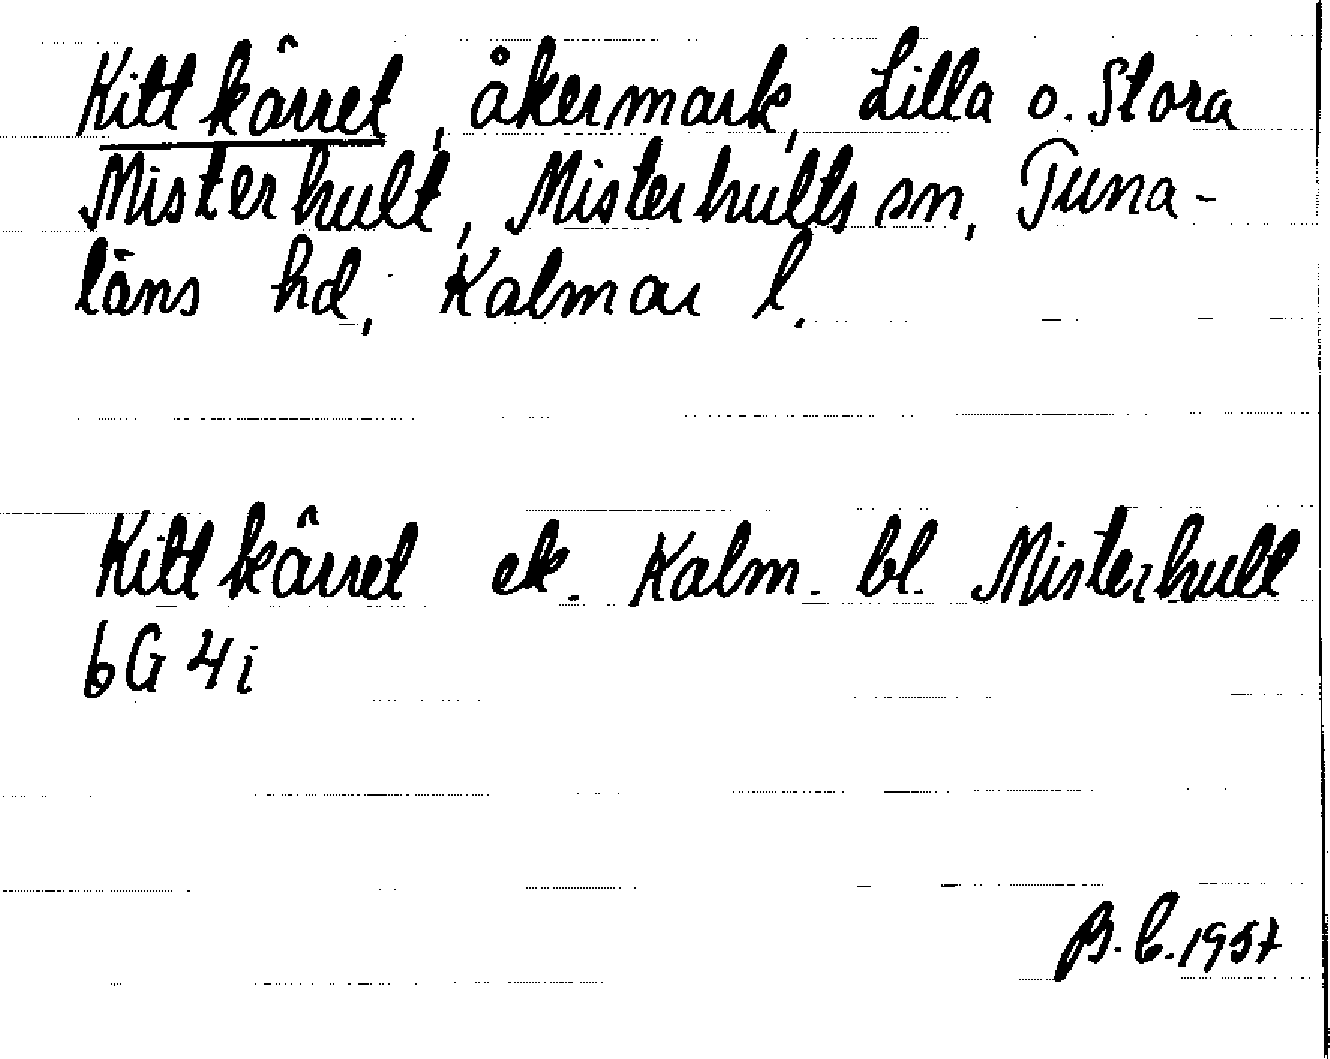 Kittkärret, åkermark, Lilla o. Stora
Misterhult, Misterhults sn, Tuna-
läns hd, Kalmar l.
Kittkärret ek. Kalm. bl. Misterhult
6G 4i
B. C. 1957